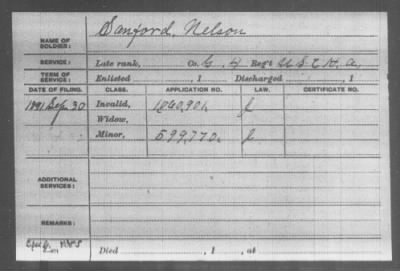 Sanford, Nelson
NAME OF SOLDIER:
SERVICE: Late rank, Co. G. 4 Reg't U S C H. A,
TERM OF SERVICE: Enlisted , 1 Discharged , 1
DATE OF FILING. CLASS. APPLICATION NO. LAW. CERTIFICATE NO.
1891 Sep. 30 Invalid, 1,060,901.
Widow,
Minor, 599,770.
ADDITIONAL SERVICES:
REMARKS:
Died , 1 , at